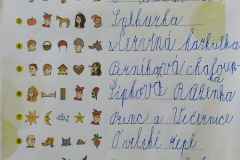 3
4 Červená karkulka
5 Perníková chaloup-
ka
6 Šípková Růženka
7 Princ a Večernice
8 O veliké řepě